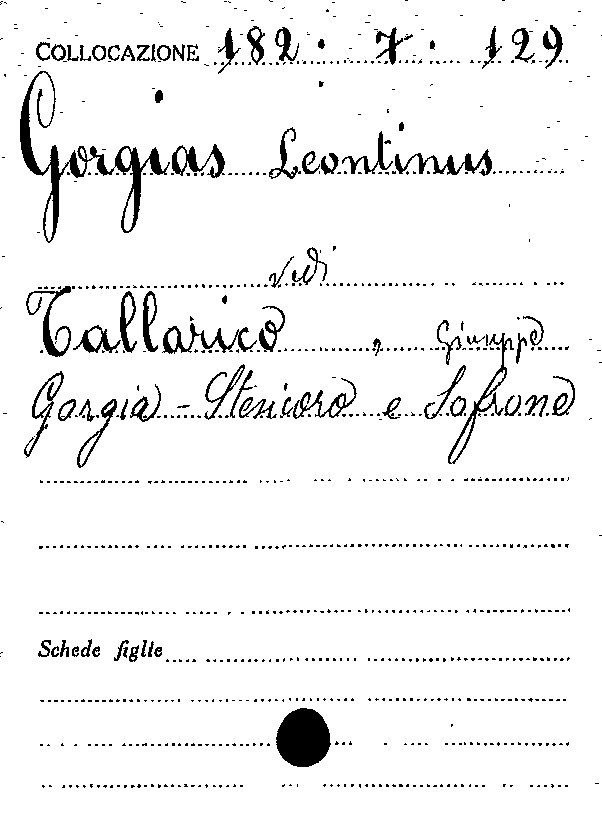 COLLOCAZIONE 182. 7. 129
Gorgias Leontinus
vedi
Tallarico, Giuseppe
Gorgia - Stesicoro e Sofrone
Schede figlie